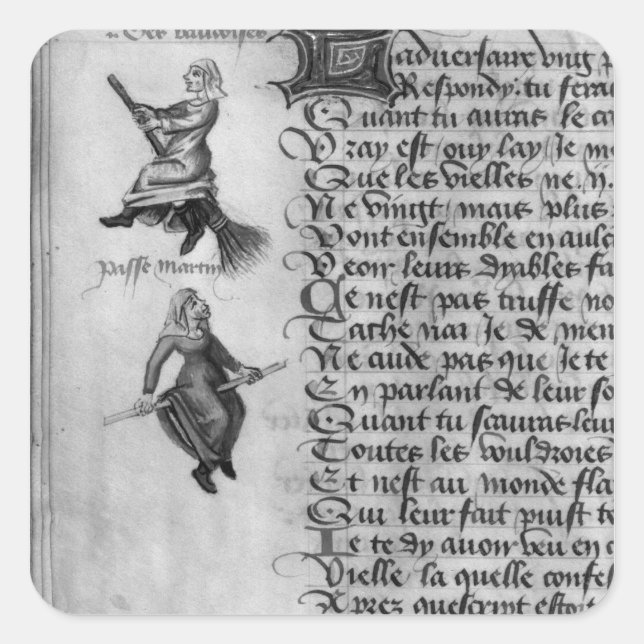 Des vauldoises
passe martin
Ladversaire ung p
Respondy: tu feras
Quant tu auras le ca
Vray est ouy lay Je me
Que les vielles ne .ij.
Ne vingt mais plus
Vont ensemble en aulc
Veoir leurs dyables fa
Ce nest pas truffe no
Tache nai Je de men
Ne cuide pas que Je te
En parlant de leur so
Quant tu scauras leur
Toutes les vouldroies
Et nest au monde fla
Qui leur fait puist te
Je te dy avoir veu en c
Vielle la quelle confes
Aprez quescript estoit